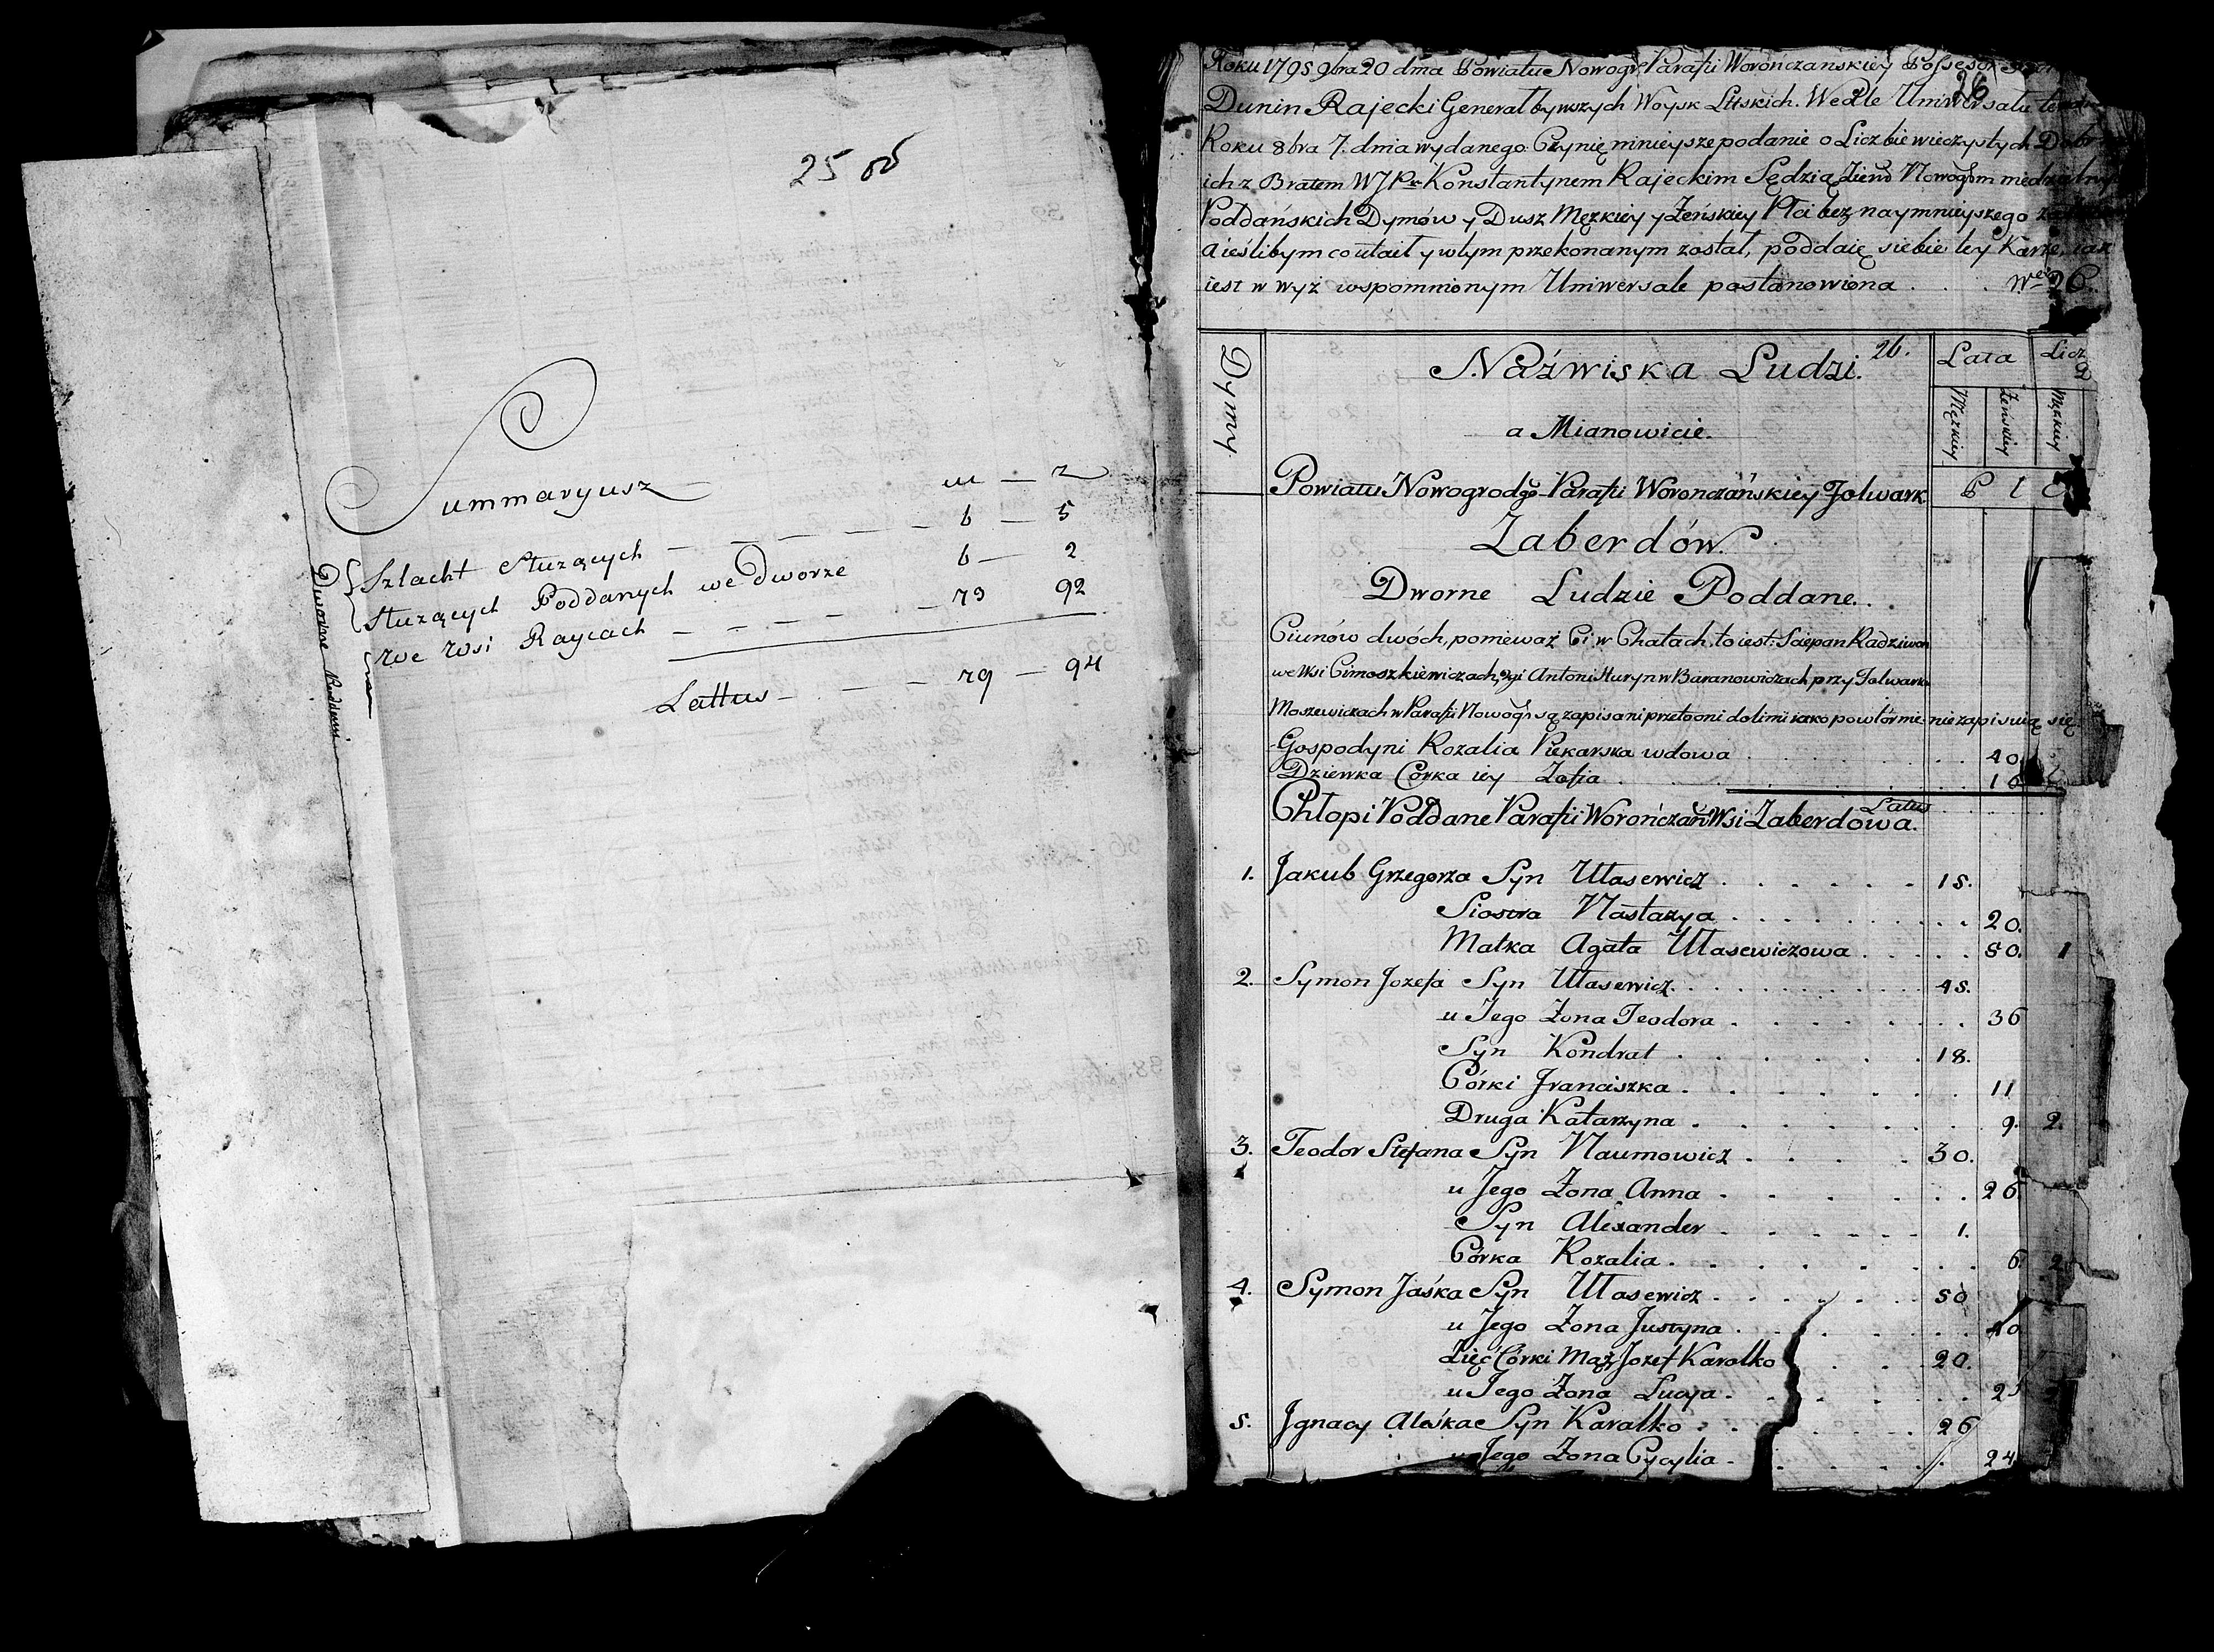 25 об
Summaryusz
m — z
Szlacht Służących — — — — — 6 — 5
Służących Poddanych we Dworze 6 — 2
we wsi Raycach — — — — — 73 92
Lattus — — — — 79 — 94
Dworne Poddani
Roku 1795 9bra 20 dnia Powiatu Nowogr Parafii Worończanskiey Possesor
26
Dunin Rajecki Generał bywszych Woysk Littskich. Wedle Uniwersału
Roku 8bra 7. dnia wydanego. Czynię ninieysze podanie o Liczbie wieczystych Dobr
ich z Bratem WJPr Konstantynem Rajeckim Sędzią Ziem Nowogrm
Poddańskich Dymów y Dusz Męzkiey y Żeńskiey Płci bez naymnieyszego
a ieślibym co utaił y w tym przekonanym został, poddaię siebie tey Karze, iak
iest w wyż wspomnionym Uniwersale postanowiona . . . .
Dymy
Naźwiska Ludzi. 26.
Lata
Licz
a Mianowicie.
Męzkiey
Żeńskiey
Męzkiey
Powiatu Nowogrodgo Parafii Worończańskiey Folwark
P ł c
Zaberdów.
Dworne Ludzie Poddane.
Ciunów dwóch, ponieważ Ci w Chatach, to iest: Sciepan Radziwon
we Wsi Cimoszkiewiczach, 2gi Antoni Huryn w Baranowiczach przy Folwarku
Moszewiczach w Parafii Nowogr są zapisani przeto oni do limi iako powtórnie nie zapisuią się
Gospodyni Rozalia Piekarska wdowa . . . . . 40
Dziewka Córka iey Zofia . . . . . 16
Latus
Chłopi Poddane Parafii Worończań Wsi Zaberdowa.
1. Jakub Grzegorza Syn Ułasewicz . . . . . 15.
Siostra Nastazya . . . . . 20.
Matka Agata Ułasewiczowa . . . . . 50. 1
2. Symon Jozefa Syn Ułasewicz . . . . . 45.
u Jego Żona Teodora . . . . . 36
Syn Kondrat . . . . . 18.
Córki Franciszka . . . . . 11
Druga Katarzyna . . . . . 9. 2.
3. Teodor Stefana Syn Naumowicz . . . . . 30.
u Jego Żona Anna . . . . . 26.
Syn Alexander . . . . . 1.
Córka Rozalia . . . . . 6. 2
4. Symon Jaśka Syn Ułasewicz . . . . . 50
u Jego Żona Justyna . . . . . 40.
Zięć Córki Mąż Jozef Karalko . . . . . 20.
u Jego Żona Lucya . . . . . 25
5. Jgnacy Aleśka Syn Karalko . . . . . 26
u Jego Żona Cycylia . . . . . 24